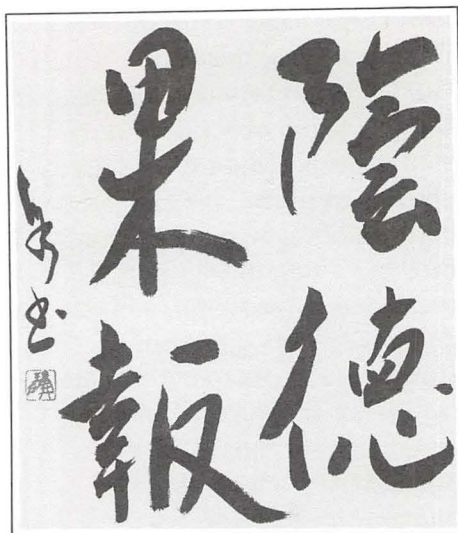 陰徳
果報